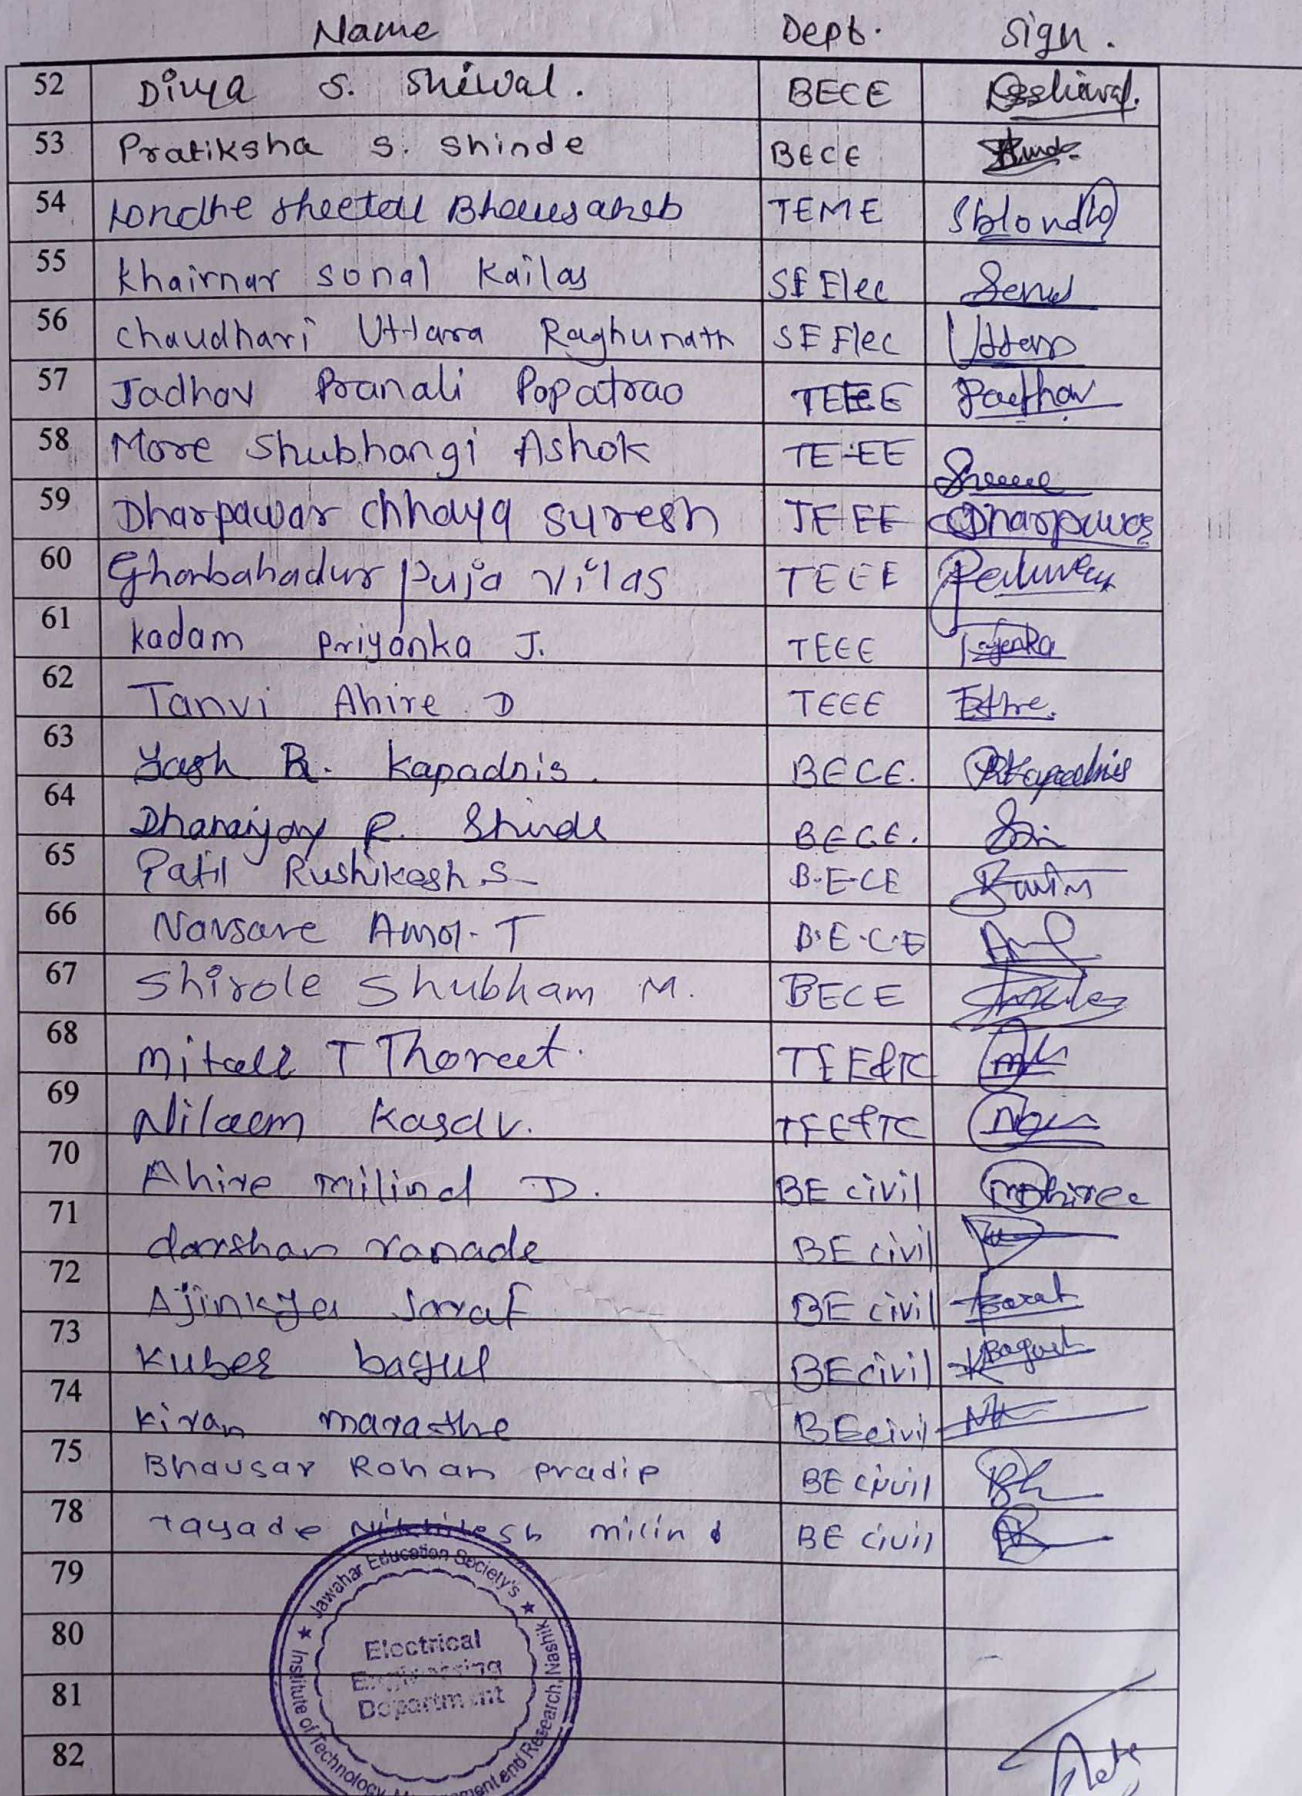 Name Dept. Sign.
52 Divya S. Shewal. BECE
53 Pratiksha S. Shinde BECE
54 Londhe Sheetal Bhausaheb TEME Sblondhe
55 Khairnar Sonal Kailas SE Elec Sonal
56 Chaudhari Uttara Raghunath SE Elec Uttara
57 Jadhav Pranali Popatrao TEEE
58 More Shubhangi Ashok TE-EE
59 Dharpawar chhaya suresh TEEE Dharpawar
60 Ghorbahadur puja vilas TEEE
61 Kadam Priyanka J. TEEE
62 Tanvi Ahire D TEEE
63 Yash R. Kapadnis. BECE. RKapadnis
64 Dhananjay R. Shinde BECE.
65 Patil Rushikesh S B.E-CE
66 Navsare Amol. T B.E.C.E
67 Shirole Shubham M. BECE
68 Mitall T Thoreet. TEE&TC
69 Nilaem Kasdv. TEE&TC
70 Ahire milind D. BE civil mDhiree
71 darshan ranade BE civil
72 Ajinkya Saraf BE civil
73 Kuber bagul BE civil KBagul
74 Kiran marathe BE civil
75 Bhavsar Rohan pradip BE civil Bh
78 tayade Nikhilesh milind BE civil
79
80
81
82
★ Jawahar Education Society's ★
Institute of Technology, Management and Research, Nashik
Electrical
Engineering
Department